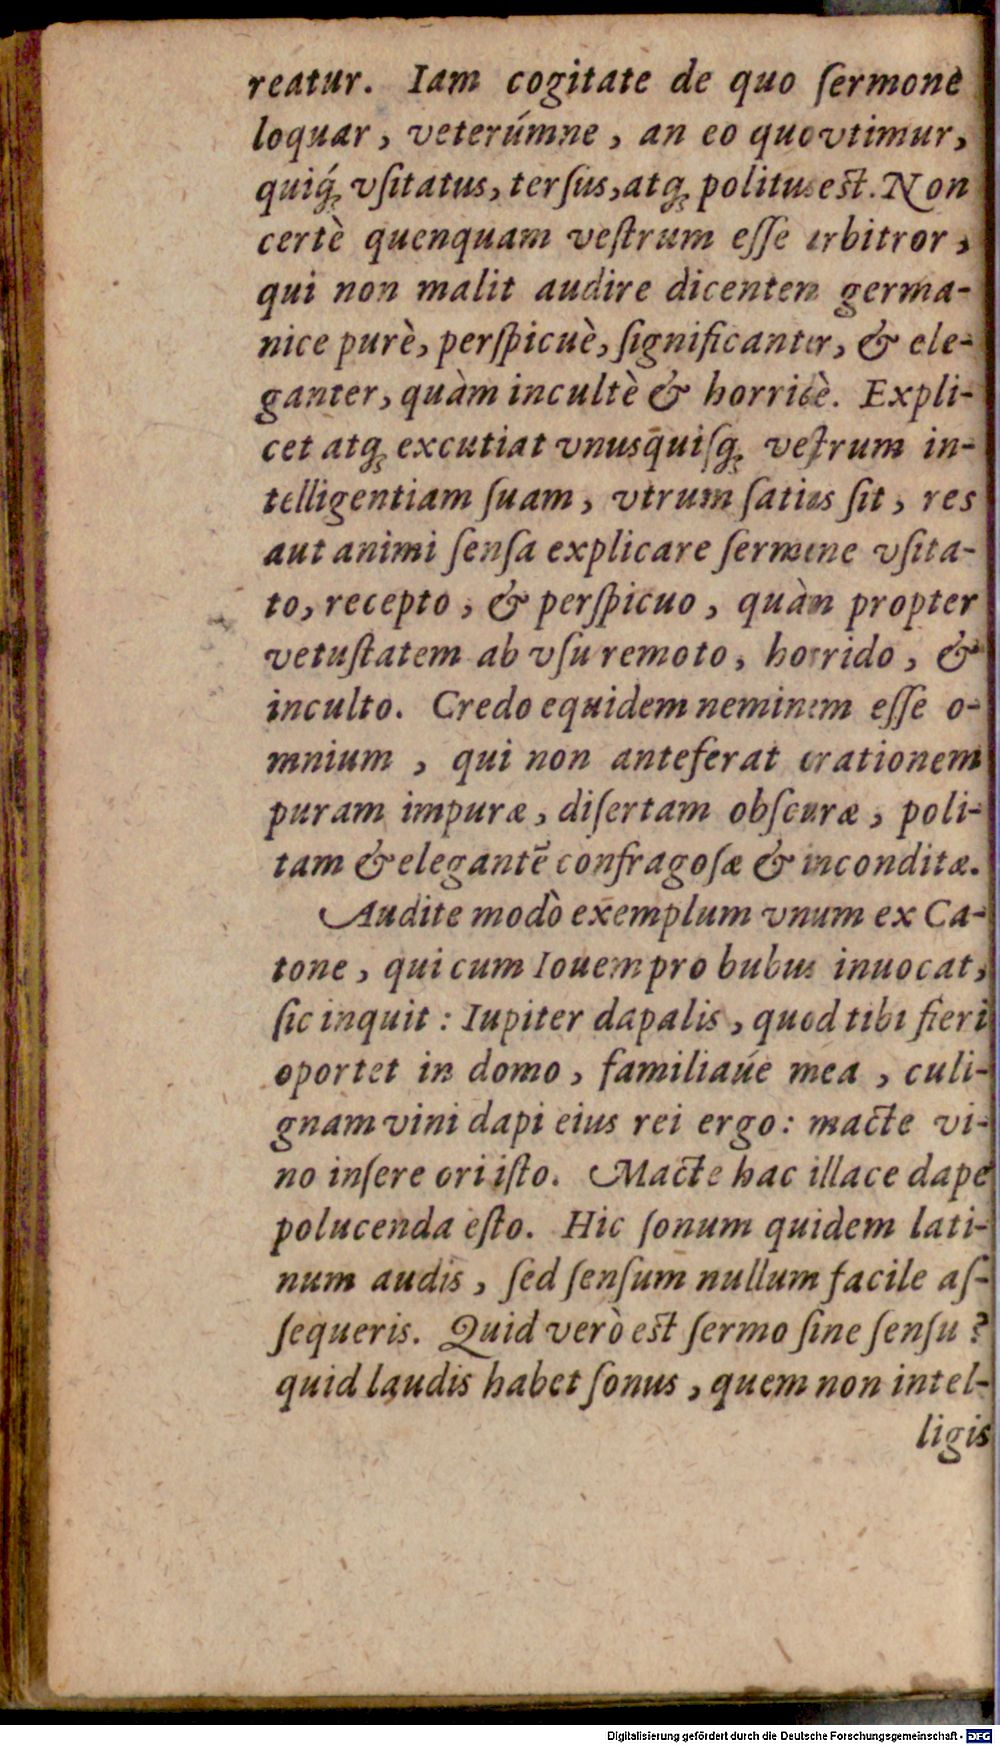 reatur. Iam cogitate de quo ſermone
loquar, veterúmne, an eo quo vtimur,
quiq́ꝫ vſitatus, terſus, atqꝫ politus est. Non
certè quenquam veſtrum eſſe arbitror,
qui non malit audire dicentem germa-
nice purè, perſpicuè, ſignificanter, & ele-
ganter, quàm incultè & horridè. Expli-
cet atqꝫ excutiat vnusquiſqꝫ veſtrum in-
telligentiam ſuam, vtrum ſatius ſit, res
aut animi ſenſa explicare ſermone vſita-
to, recepto, & perſpicuo, quàm propter
vetuſtatem ab vſu remoto, horrido, &
inculto. Credo equidem neminem eſſe o-
mnium, qui non anteferat orationem
puram impuræ, diſertam obſcuræ, poli-
tam & elegantē confragoſæ & inconditæ.
Audite modò exemplum vnum ex Ca-
tone, qui cum Iouem pro bubus inuocat,
ſic inquit: Iupiter dapalis, quod tibi fieri
oportet in domo, familiaúe mea, culi-
gnam vini dapi eius rei ergo: macte vi-
no inſere ori iſto. Macte hac illace dape
polucenda eſto. Hic ſonum quidem lati-
num audis, ſed ſenſum nullum facile aſ-
ſequeris. Quid verò est ſermo ſine ſenſu?
quid laudis habet ſonus, quem non intel-
ligis
Digitalisierung gefördert durch die Deutsche Forschungsgemeinschaft - DFG